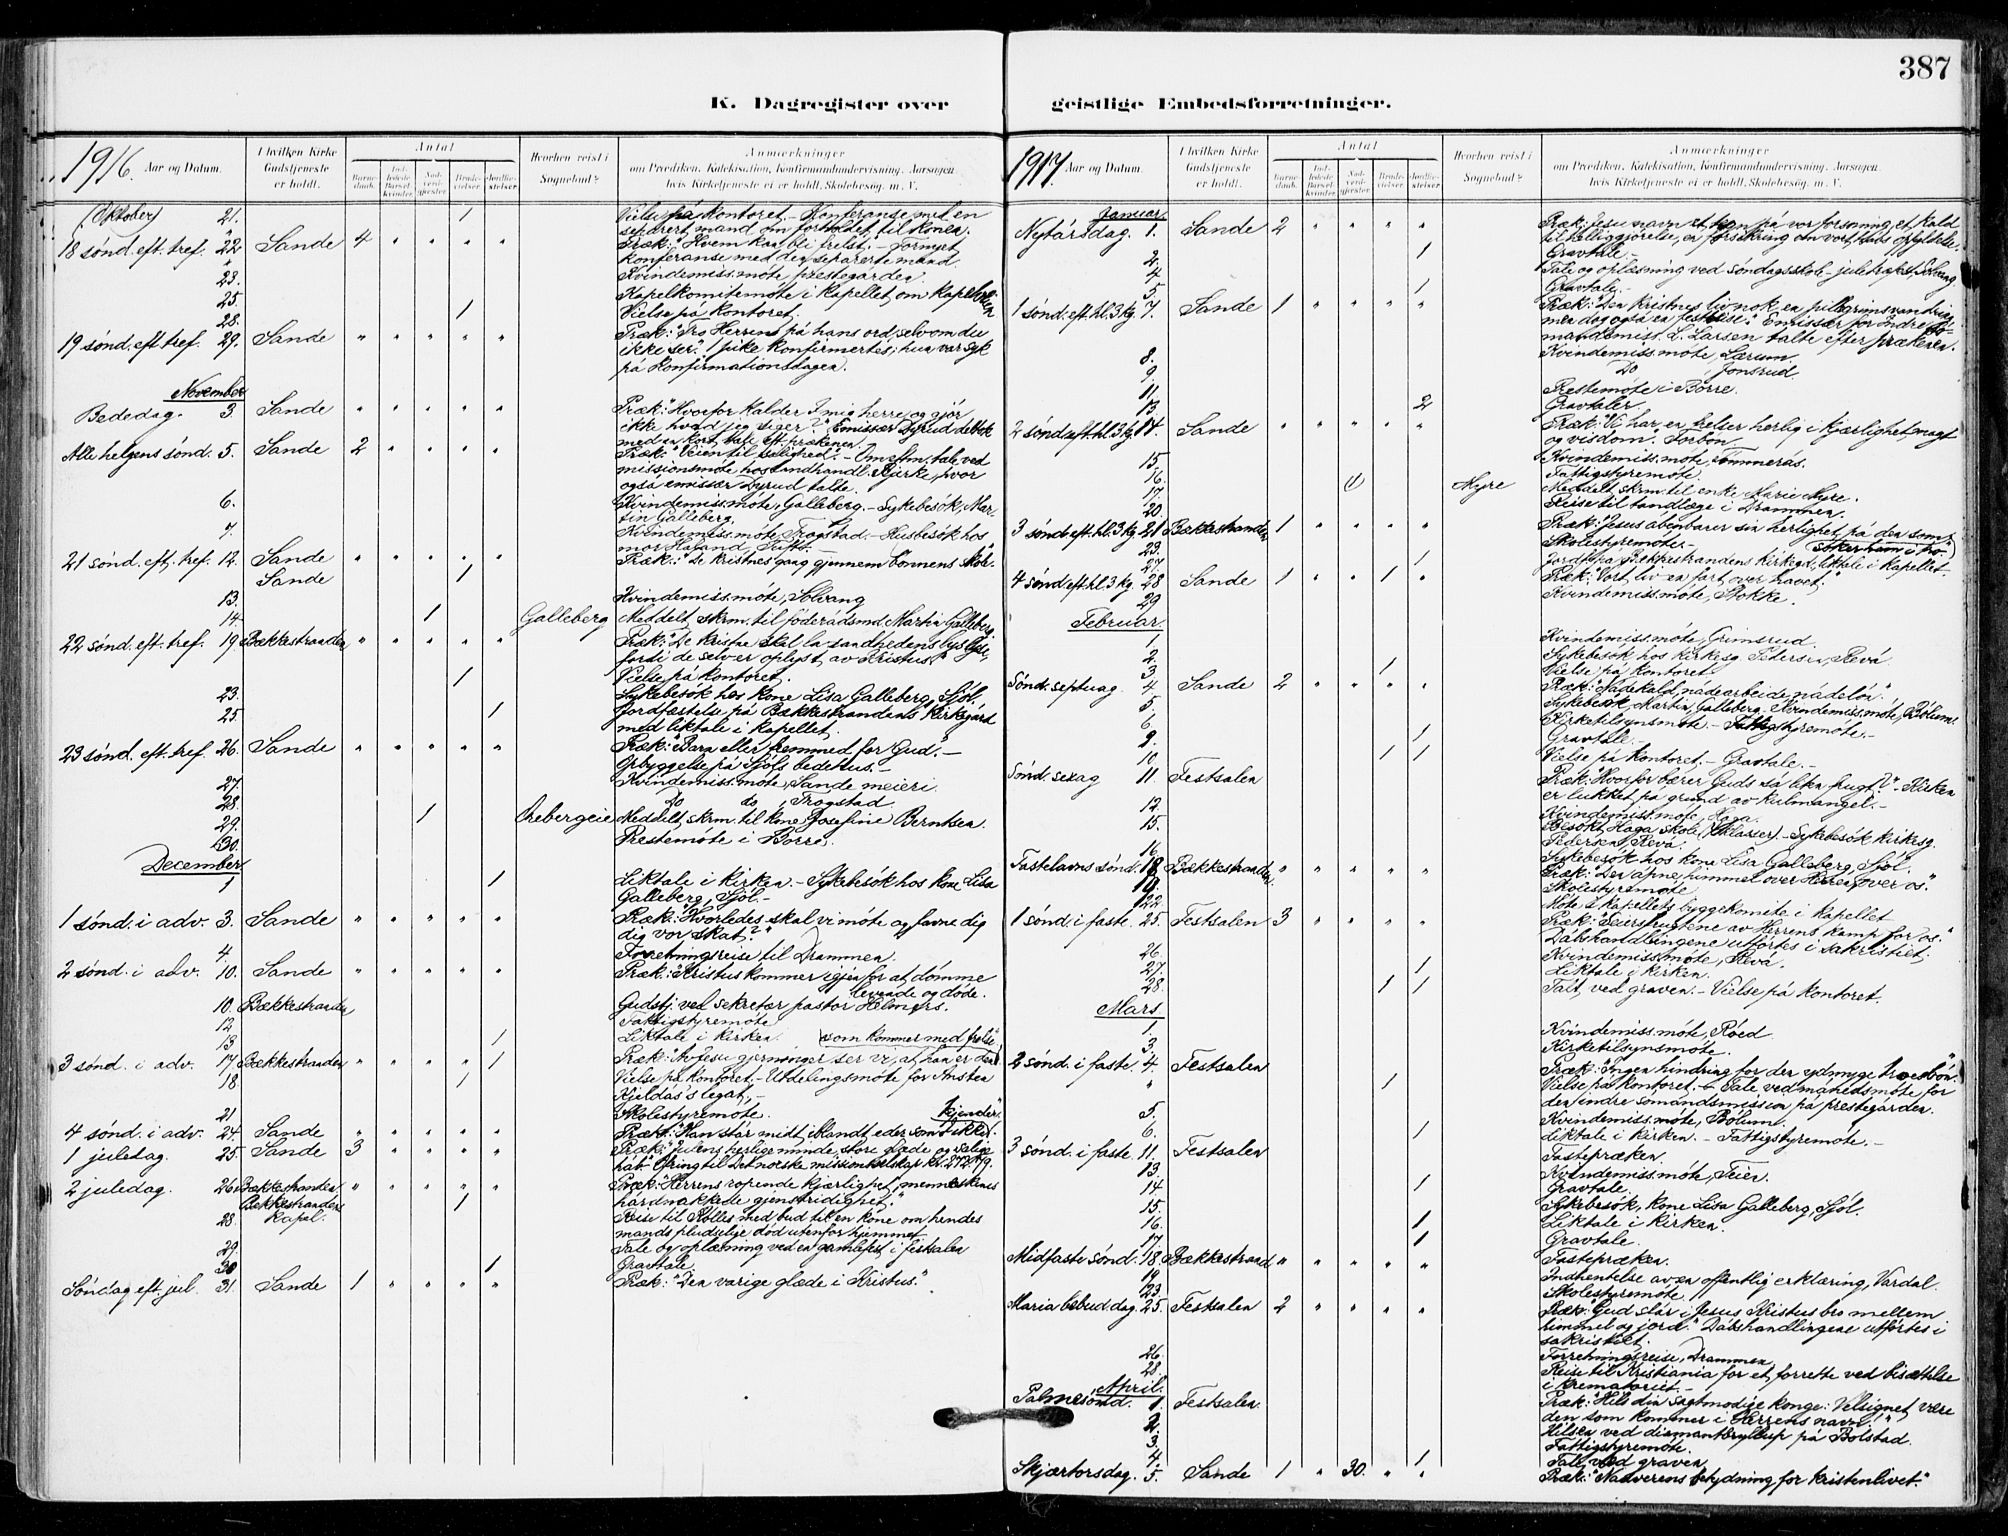 387
K. Dagregister over
geistlige Embedsforretninger.
1916. Aar og Datum.
I hvilken Kirke Gudstjeneste er holdt.
Antal
Barnedaab.
Indledede Barselkvinder.
Nadverdgjester
Brudevielser
Jordfæstelser
Hvorhen reist i Sognebud?
Anmærkninger
om Prædiken, Katekisation, Konfirmandundervisning, Aarsagen
hvis Kirketjeneste ei er holdt, Skolebesøg m. V.
(Oktober) 21. 1 Vielse på kontoret. – Konferanse med en
separert mand om forholdet til konen.
18 sønd. eft. tref. 22. Sande 4 " " " " Præk: "Hvem kan bli frelst. – Fornyet
konferanse med den separerte mand.
23. Kvindemiss.møte, prestegården
25. Kapelkomitemøte i kapellet om
28. 1 Vielse på kontoret.
19 sønd. eft. tref. 29. Sande " " " " " Præk: "Tro Herren på hans ord, selv om du
ikke ser." 1 pike konfirmertes; hun var syk
på konfirmationsdagen.
November
Bededag. 3 Sande " " " " " Præk: "Hvorfor kalder I mig herre og gjør
ikke hvad jeg siger?" Emissær Dyrud deltok
med en kort tale eft. prækenen.
Alle helgens sønd. 5. Sande 2 " " " " Præk: "Veien til salighed". – Om eftm. tale ved
missionsmøte hos landhandl. Bjerke, hvor
også emissær Dyrud talte.
6. Kvindemiss.møte, Galleberg. – Sykebesøk, Martin
Galleberg.
7. Kvindemiss.møte, Trogstad. – Husbesøk hos
mor Høland, Tufte. –
21 sønd. eft. tref. 12. Sande " " " " " Præk: "De kristnes gang gjennem bønnens skole.
Sande 1
13. Kvindemiss.møte, Solvang
14. 1 Galleberg Meddelt skrm. til føderådsmd. Martin Galleberg.
22 sønd. eft. tref. 19 Bækkestranden " " " " " Præk: "De kristne skal la sandhedens lys lyse,
fordi de selv er oplyst av Kristus."
1 Vielse på kontoret.
23. Sykebesøk hos kone Lisa Galleberg, Sjøl.
25. 1 Jordfæstelse på Bækkestrandens kirkegård
med liktale i kapellet.
23 sønd. eft. tref. 26. Sande " " " " " Præk: "Barn eller fremmed for Gud". –
Opbyggelse på Sjøls bedehus. –
27. Kvindemiss.møte, Sande meieri.
28. Do do, Trogstad.
29. 1 Meddelt skrm. til kone Josefine Berntsen.
30. Prestemøte i Borre.
December
1 1 Liktale i kirken. – Sykebesøk hos kone Lisa
Galleberg, Sjøl. –
1 sønd. i adv. 3. Sande " " " " " Præk: "Hvorledes skal vi møte og favne dig
dig vor skat?"
4. Forretningsreise til Drammen.
2 sønd. i adv. 10. Sande " " " " " Præk: "Kristus kommer igjen for at dømme
levende og døde.
10. Bækkestranden Gudstj. ved sekretær pastor Helmers.
12 Fattigstyremøte
13 1 Liktale i kirken. som kommer med frelse."
3 sønd. i adv. 17 Bækkestranden " " " " 1 Præk: "Av Jesu gjerninger ser vi, at han er den
18 1 Vielse på kontoret. – Utdelingsmøte for Ansten
Kjeldås's legat, –
21 Skolestyremøte. kjender."
4 sønd. i adv. 24. Sande " " " " " Præk: "Han står midt iblandt eder som I ikke
1 juledag. 25. Sande 3 " " " " Præk: "Julens herlige minde, store glæde og salige
håb." Ofring til Det norske missionsselskap kr. 272.79.
2 juledag. 26. Bækkestranden " " " " " Præk: "Herrens ropende kjærlighet, menneskenes
Bækkestrandens kapel. 1 hårdnakkede gjenstridighet."
28. Reise til Kolles med bud til en kone om hendes
mands pludselige død utenfor hjemmet.
29. Tale og oplæsning ved en gamlefest i festsalen
30 1 Gravtale.
Søndag eft. jul. 31. Sande 1 " " " " Præk: "Den varige glæde i Kristus."
1917. Aar og Datum.
I hvilken Kirke Gudstjeneste er holdt.
Antal
Barnedaab.
Indledede Barselkvinder.
Nadverdgjester
Brudevielser
Jordfæstelser
Hvorhen reist i Sognebud?
Anmærkninger
om Prædiken, Katekisation, Konfirmandundervisning, Aarsagen
hvis Kirketjeneste ei er holdt, Skolebesøg m. V.
Januar.
Nytårsdag. 1. Sande 2 " " " " Præk: Jesu navn et tegn på vor forsoning, et kald
til helliggjørelse, en forsikring om vort håbs opfyldelse.
2. 1 Gravtale. –
4. Tale og oplæsning ved søndagsskole-juletræfest, Solvang
5. 1 Gravtale. –
1 sønd. eft. hl. 3 kg. 7. Sande 1 " " " " Præk: "Den kristnes liv nok en pilgrimsvandring,
men dog også en festreise." Emissær for Indre
mandsmiss. L. Larsen talte efter prækenen.
8. Kvindemiss.møte, Lærum.
9. Do, Jonsrud.
11. Prestemøte i Borre.
13 2 Gravtaler.
2 sønd. eft. hl. 3 kg. 14. Sande " " " " " Præk: "Vi har en frelser herlig i kjærlighet, magt
og visdom. Forbøn.
15. Kvindemiss.møte, Tømmerås.
16. Fattigstyremøte.
17. 1 Myre Meddelt skrm. til enke Marie Myre.
20. Reise til tandlæge i Drammen.
3 sønd. eft. hl. 3 kg. 21 Bækkestranden 1 " " " " Præk: "Jesus åbenbarer sin herlighet på den som
søker ham i tro."
23. Skolestyremøte. –
27. 1 Jordf. på Bækkestrandens kirkegd. liktale i kapellet.
4 sønd. eft. hl. 3 kg. 28 Sande 1 " " 1 " Præk: "Vort liv en fart over havet."
29 Kvindemiss.møte, Stokke.
Februar.
1. Kvindemiss.møte, Grimsrud.
2. Sykebesøk hos kirkesg. Pedersen, Revå.
3. 1 Vielse på kontoret
Sønd. septuag. 4. Sande 2 " " " " Præk: "Nådekald, nådearbeide, nådeløn."
5. Sykebesøk, Martin Galleberg. Kvindemiss.møte, Bølum.
6. Kirketilsynsmøte. – Fattigstyremøte. –
9. 1 Gravtale. –
10. 1 1 Vielse på kontoret. – Gravtale. –
Sønd. sexag 11. Festsalen Præk: "Hvorfor bærer Guds så liten frugt?" – Kirken
er lukket på grund av kulmangel. –
12. Kvindemiss.møte, Haga.
15. Besøkt Haga skole, (2 klasser) – Sykebesøk kirkesg.
Pedersen, Revå.
16. Sykebesøk hos kone Lisa Galleberg, Sjøl.
Fastelavns sønd. 18 Bækkestranden " " " " " Præk: "Den åpne himmel over Herren, over os."
19. Skolestyremøte
22. Møte i kapellets byggekomite i kapellet
1 sønd. i faste. 25. Festsalen 3 " " " " Præk: "Seiersfrugtene av Herrens kamp for os."
Dåbshandlingene utførtes i sakristiet;
26. Kvindemiss.møte, Revå.
27. 1 Liktale i kirken.
28. 1 1 Talt ved graven. – Vielse på kontoret.
Mars.
1. Kvindemiss.møte, Røed
3. Kirketilsynsmøte.
2 sønd. i faste. 4. Festsalen Præk: "Ingen hindring for den ydmyge troesbøn."
" 1 Vielse på kontoret. – Tale ved månedsmøte for
den indre sømandsmission på prestegården.
5. Kvindemiss.møte, Bølum.
6. 1 Liktale i kirken. – Fattigstyremøte. –
3 sønd. i faste. 11. Festsalen Fastepræken.
13. Kvindemiss.møte, Feien.
14. 1 Gravtale.
15. Sykebesøk, kone Lisa Galleberg, Sjøl.
16. 1 Liktale i kirken.
17. 1 Gravtale.
Midfaste sønd. 18. Bækkestrand " " " " " Fastepræken.
19 Indhentelse av en offentlig erklæring, Vardal.
23. Skolestyremøte.
Maria bebud. dag. 25. Festsalen 2 " " " " Præk: "Gud slår i Jesus Kristus bro mellem
himmel og jord." Dåbshandlingene utførtes i
sakristiet.
26. Forretningsreise, Drammen
28. Reise til Kristiania for et forrette ved bisættelse
i krematoriet. –
April.
Palmesønd. 1. Festsalen Præk: "Hils din sagtmodige konge: Velsignet være
den som kommer i Herrens navn."
2. Hilsen ved diamantbryllup på Bolstad.
3. Fattigstyremøte.
4. 1 Tale ved graven
Skjærtorsdag. 5. Sande 1 " 30. " " Præk: "Nadverens betydning for kristenlivet."